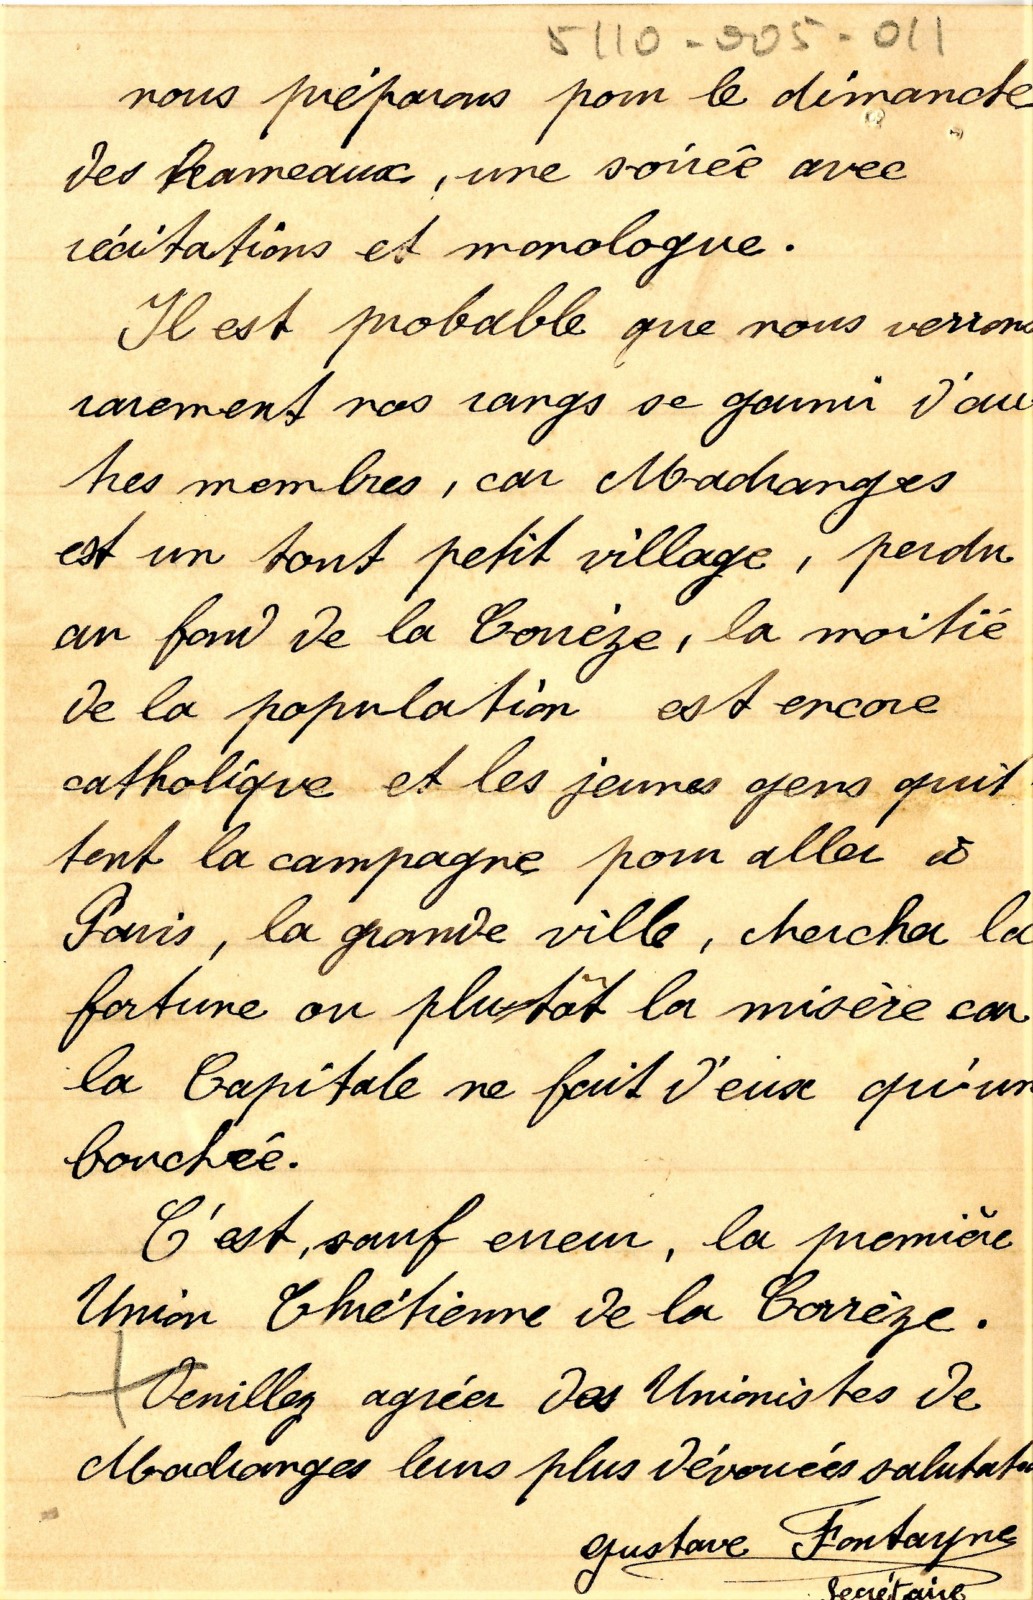 5110-205-011
nous préparons pour le dimanche
des Rameaux, une soirée avec
récitations et monologue.
Il est probable que nous verrons
rarement nos rangs se garnir d'au
tres membres, car Madranges
est un tout petit village, perdu
au fond de la Corrèze, la moitié
de la population est encore
catholique et les jeunes gens quit
tent la campagne pour aller à
Paris, la grande ville, chercher la
fortune ou plutôt la misère car
la Capitale ne fait d'eux qu'un
bouchée.
C'est, sauf erreur, la première
Union Chrétienne de la Corrèze.
Veuillez agréer des Unionistes de
Madranges leurs plus dévouées salutat
Gustave Fontayne
Secrétaire